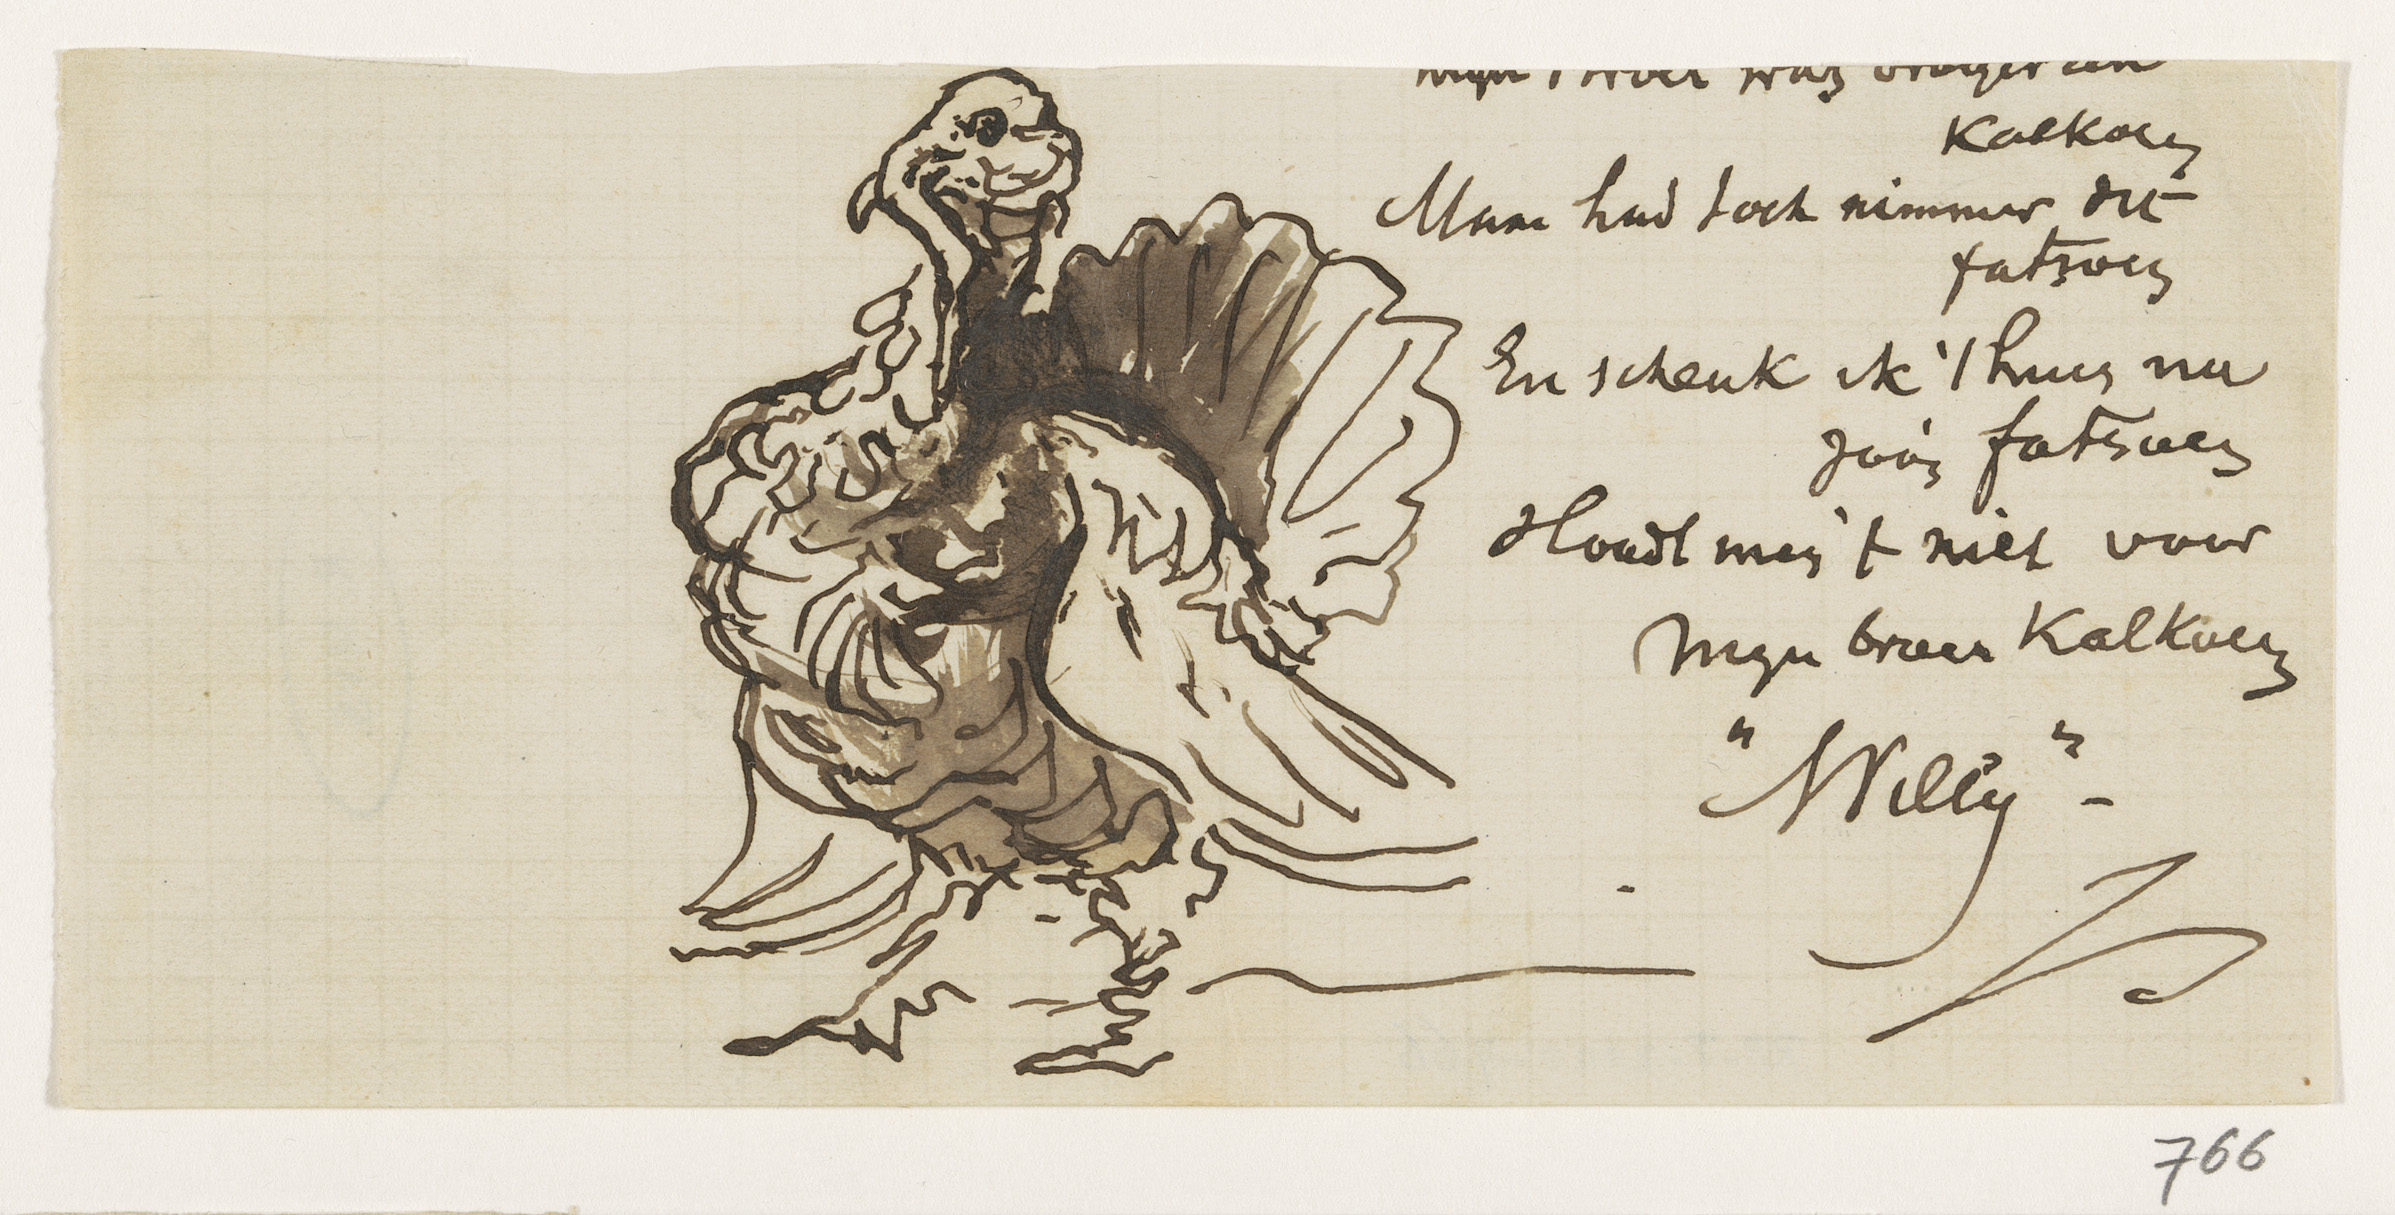 mijn broer was vroeger een
Kalkoen
Maar had toch nimmer dit
fatsoen
En schenk ik 't huis nu
zoo'n fatsoen
Houdt mij 't niet voor
Mijn broer Kalkoen
"Willy" -
766